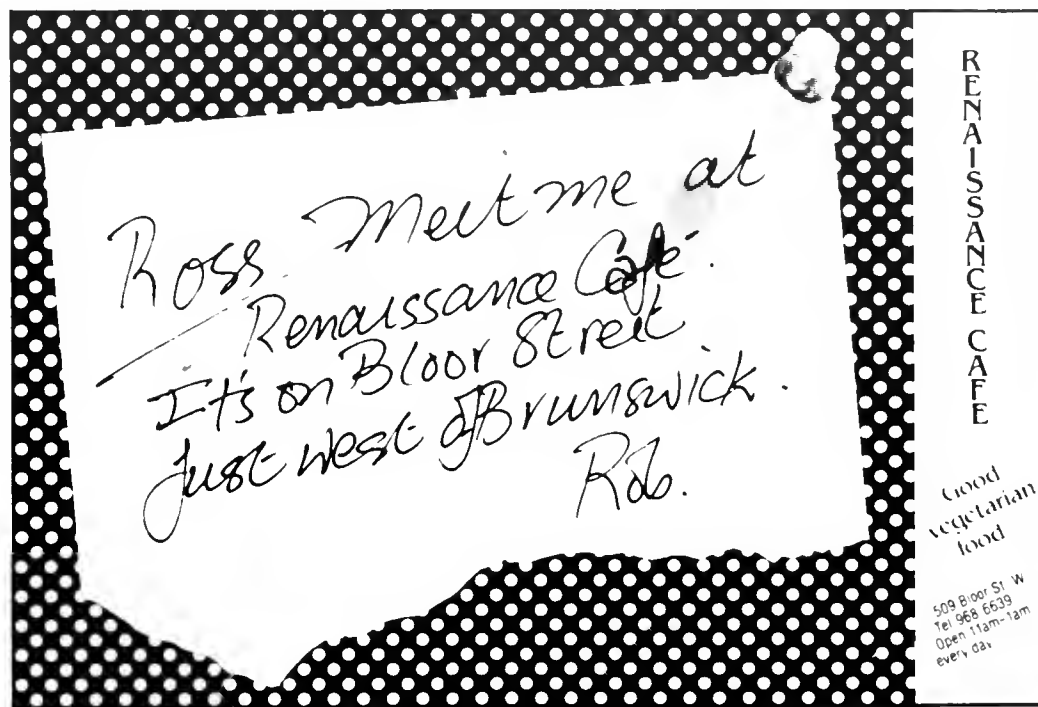 Ross. Meet me at
Renaissance Café.
It's on Bloor Street
just west of Brunswick.
Rob.
RENAISSANCE CAFE
Good
vegetarian
food
509 Bloor St W
Tel 968 6639
Open 11am-1am
every day